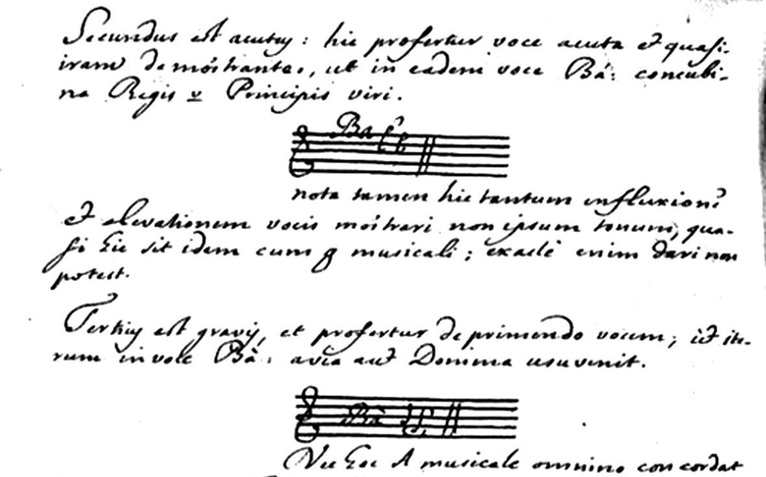 Secundus est acutus: hic profertur voce acuta et quasi
iram demõstrante, ut in eadem voce Bá: concubi-
na Regis v Principis viri.
Bá
nota tamen hic tantum inflexionẽ
et elevationem vocis mõstrari non ipsum tonum, qua-
si hic sit idem cum g musicali; exactè enim dari non
potest.
Tertius est gravis, et profertur deprimendo vocem; ut ite-
rum in voce Bà: avia aut Domina usuvenit.
Bà
Nec hoc A musicale omnino concordat